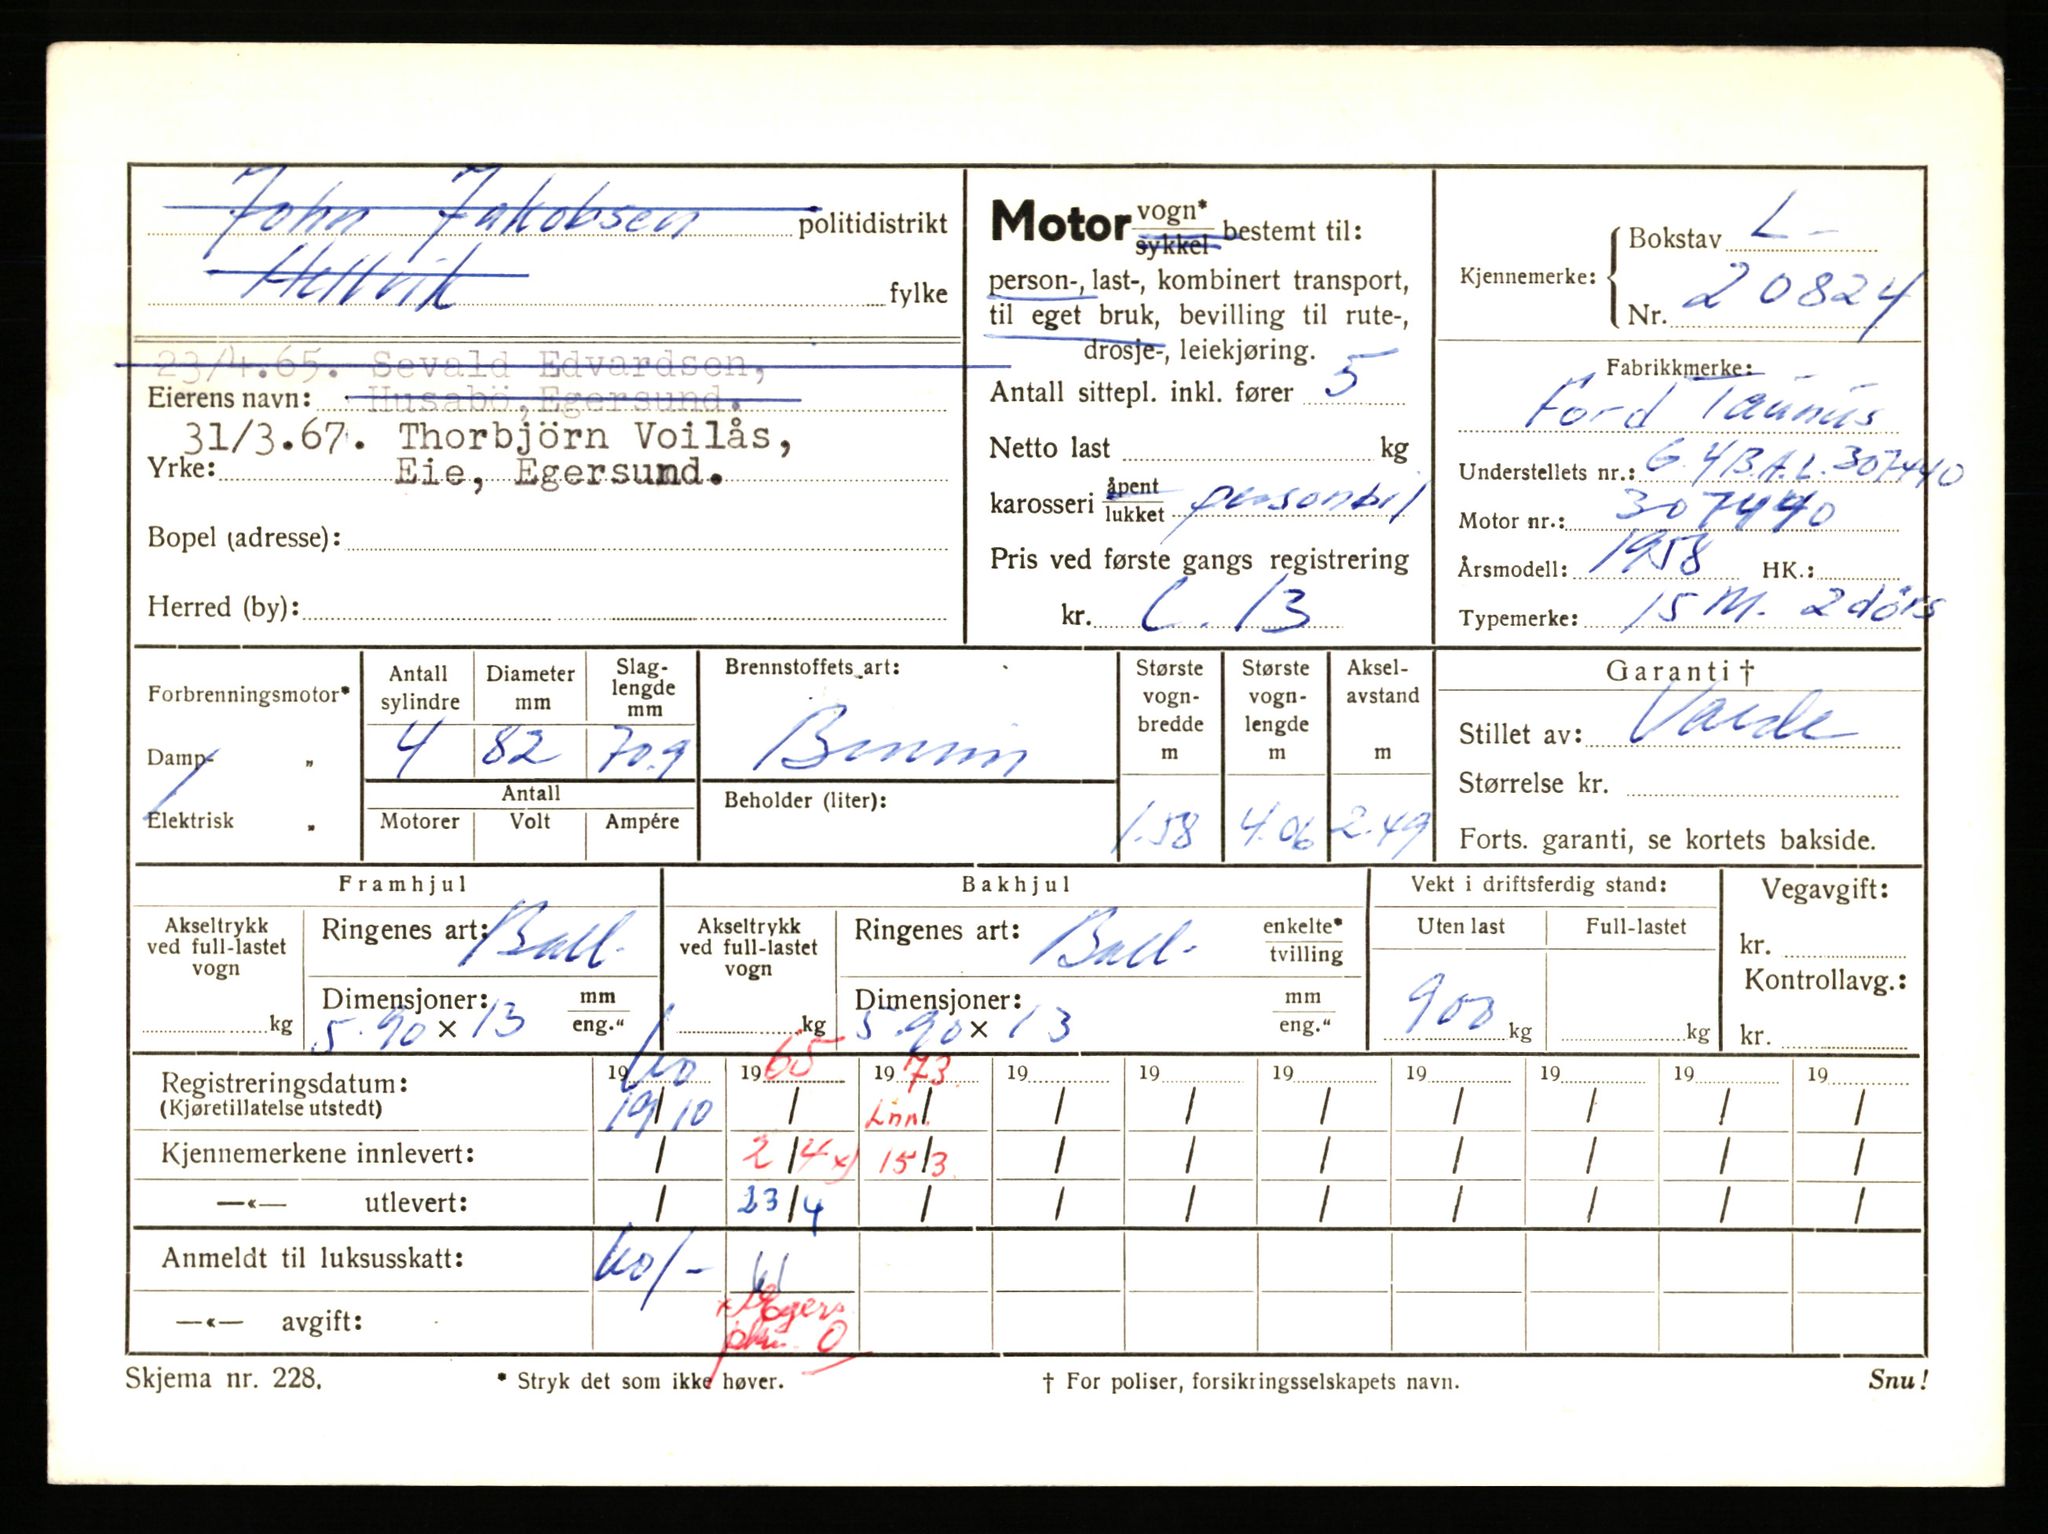 John Jakobsen politidistrikt
Hellvik fylke
23/4.65. Sevald Edvardsen,
Eierens navn: Husabö, Egersund.
31/3.67. Thorbjörn Voilås,
Yrke: Eie, Egersund.
Bopel (adresse):
Herred (by):
Motor vogn* / sykkel bestemt til:
person-, last-, kombinert transport,
til eget bruk, bevilling til rute-,
drosje-, leiekjøring.
Antall sittepl. inkl. fører 5
Netto last kg
karosseri åpent / lukket personbil
Pris ved første gangs registrering
kr. L. 13
Kjennemerke: Bokstav L -
Nr. 20824
Fabrikkmerke:
Ford Taunus
Understellets nr.: G.4B.A.L.307440
Motor nr.: 307440
Årsmodell: 1958 HK.:
Typemerke: 15 M. 2 dörs
Forbrenningsmotor*
Damp- „
Elektrisk „
Antall sylindre 4
Diameter mm 82
Slaglengde mm 70.9
Antall
Motorer Volt Ampére
Brennstoffets art:
Bensin
Beholder (liter):
Største vognbredde m 1.58
Største vognlengde m 4.06
Akselavstand m 2.49
Garanti †
Stillet av:
Størrelse kr.
Forts. garanti, se kortets bakside.
Framhjul
Akseltrykk ved full-lastet vogn kg
Ringenes art: Ball.
Dimensjoner: mm / eng."
5.90 x 13
Bakhjul
Akseltrykk ved full-lastet vogn kg
Ringenes art: Ball. enkelte* / tvilling
Dimensjoner: mm / eng."
5.90 x 13
Vekt i driftsferdig stand:
Uten last Full-lastet
900 kg kg
Vegavgift:
kr.
Kontrollavg.:
kr.
Registreringsdatum: 1960 1965 1973 19 19 19 19 19 19 19
(Kjøretillatelse utstedt) 19/10 / Inn. / / / / / / / /
Kjennemerkene innlevert: / 2/4 x) 15/3. / / / / / / /
—«— utlevert: / 23/4 / / / / / / / /
Anmeldt til luksusskatt: 60/-
—«— avgift: x) Egers.
Skjema nr. 228.
* Stryk det som ikke høver.
† For poliser, forsikringsselskapets navn.
Snu!